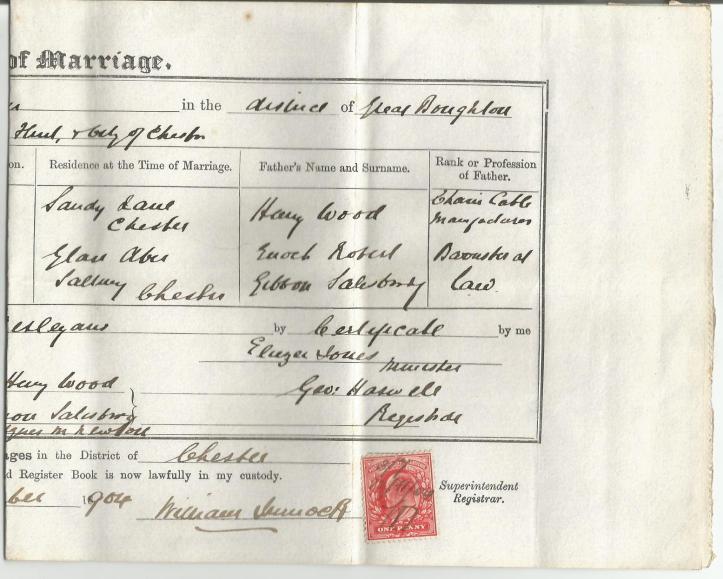 of Marriage.
in the district of Great Boughton
Flint, & City of Chester
on. Residence at the Time of Marriage. Father's Name and Surname. Rank or Profession of Father.
Sandy Lane Chester Harry Wood Chain Cable Manufacturer
Glan Aber Saltney Chester Enoch Robert Gibbon Salisbury Barrister at Law
esleyans by Certificate by me
Eliezer Jones Minister
Harry Wood Geo: Haswell
Salisbury Registrar
ages in the District of Chester
d Register Book is now lawfully in my custody.
ber 1904 William
Superintendent Registrar.
ONE PENNY